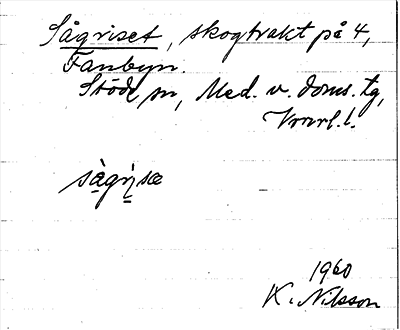 Sågriset, skogtrakt på 4,
Fanbyn.
Stöde sn, Med. v. doms. tg,
Vnrl. l.
sàgrı̀sæ
1960
K. Nilsson